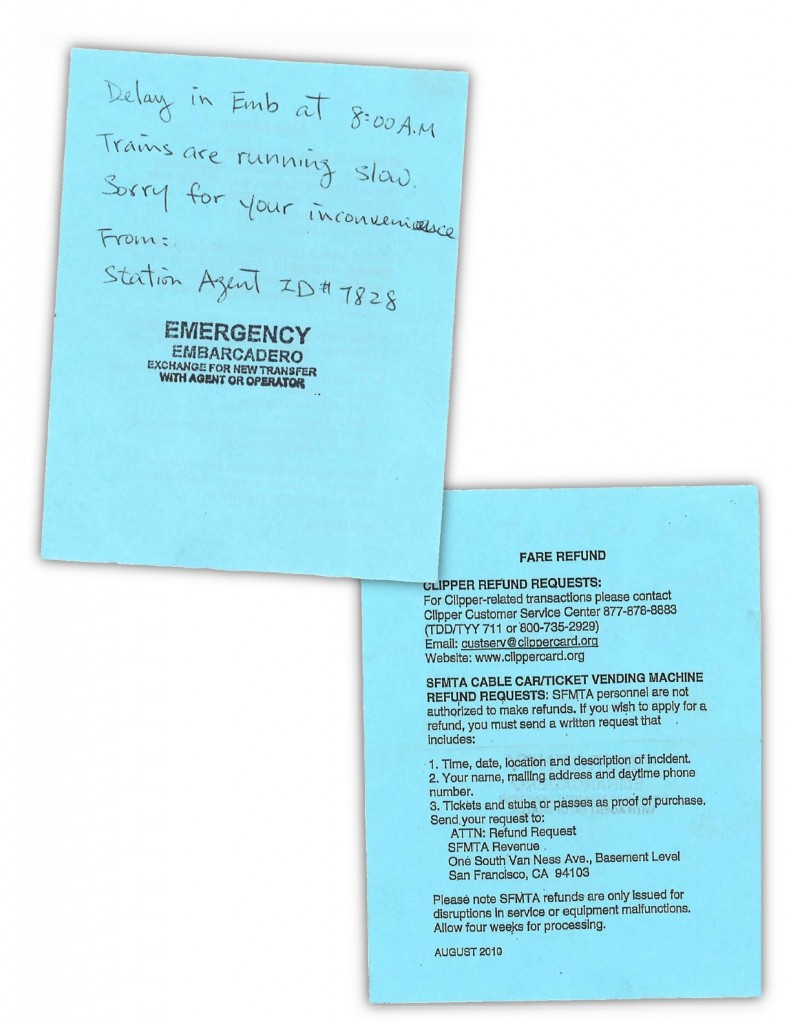 Delay in Emb at 8:00 A.M
Trains are running slow.
Sorry for your inconvenience
From:
Station Agent ID# 7828
EMERGENCY
EMBARCADERO
EXCHANGE FOR NEW TRANSFER
WITH AGENT OR OPERATOR
FARE REFUND
CLIPPER REFUND REQUESTS:
For Clipper-related transactions please contact
Clipper Customer Service Center 877-878-8883
(TDD/TYY 711 or 800-735-2929)
Email: custserv@clippercard.org
Website: www.clippercard.org
SFMTA CABLE CAR/TICKET VENDING MACHINE
REFUND REQUESTS: SFMTA personnel are not
authorized to make refunds. If you wish to apply for a
refund, you must send a written request that
includes:
1. Time, date, location and description of incident.
2. Your name, mailing address and daytime phone
number.
3. Tickets and stubs or passes as proof of purchase.
Send your request to:
ATTN: Refund Request
SFMTA Revenue
One South Van Ness Ave., Basement Level
San Francisco, CA 94103
Please note SFMTA refunds are only issued for
disruptions in service or equipment malfunctions.
Allow four weeks for processing.
AUGUST 2010